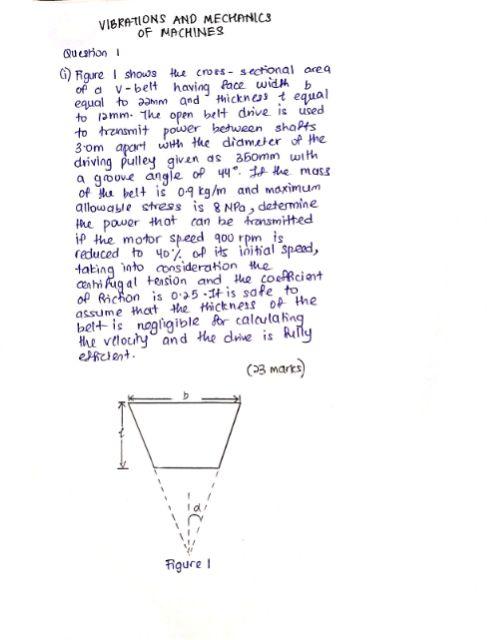 VIBRATIONS AND MECHANICS
OF MACHINES
Question 1
(i) Figure 1 shows the cross-sectional area
of a V-belt having face width b
equal to 22mm and thickness t equal
to 12mm. The open belt drive is used
to transmit power between shafts
3.0m apart with the diameter of the
driving pulley given as 350mm with
a groove angle of 44°. If the mass
of the belt is 0.9 kg/m and maximum
allowable stress is 8 MPa, determine
the power that can be transmitted
if the motor speed 900 rpm is
reduced to 40% of its initial speed,
taking into consideration the
centrifugal tension and the coefficient
of friction is 0.25. It is safe to
assume that the thickness of the
belt is negligible for calculating
the velocity and the drive is fully
efficient.
(23 marks)
b
t
α
Figure 1